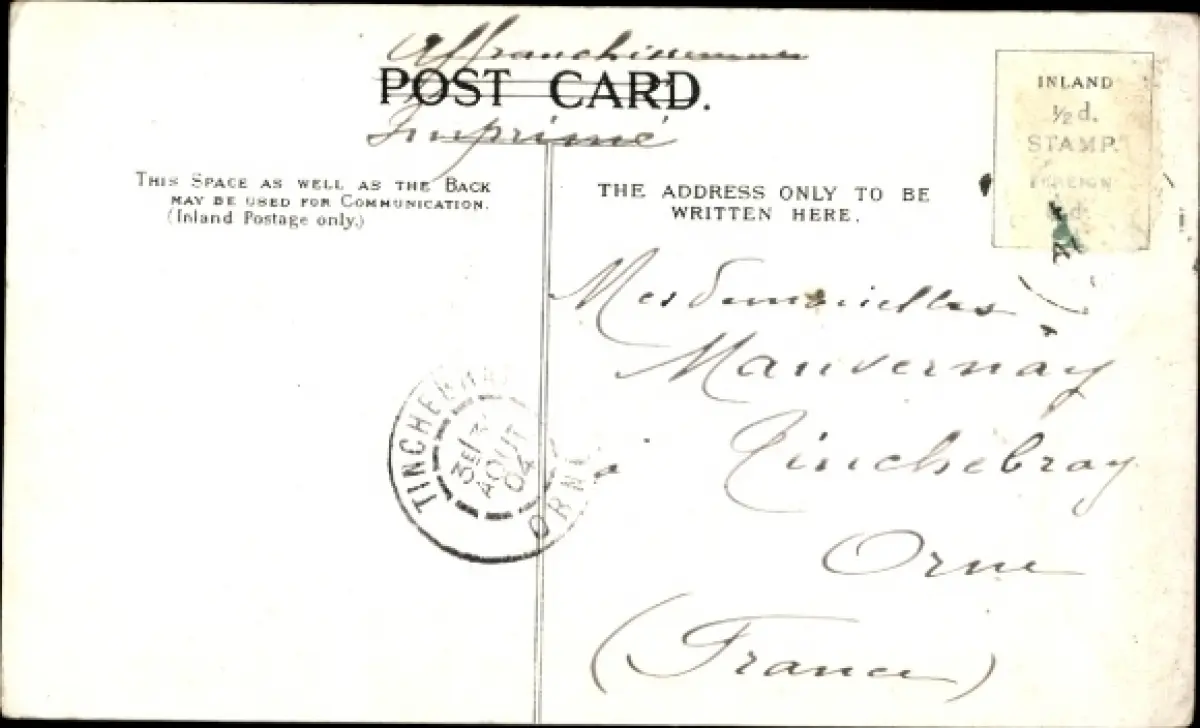 Affranchissement
POST CARD.
Imprimé
THIS SPACE AS WELL AS THE BACK
MAY BE USED FOR COMMUNICATION.
(Inland Postage only.)
THE ADDRESS ONLY TO BE
WRITTEN HERE.
INLAND
½d.
STAMP.
FOREIGN
d.
Mesdemoiselles
Mauvernay
à Tinchebray
Orne
(France)
TINCHEBRAY
3E
AOUT
04
ORNE